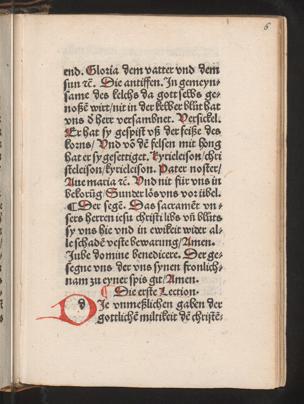 6
end. Gloria dem vatter vnd dem
sun ꝛc̄. Die antiffen. In gemeyn-
same des kelchs da gott selbs ge-
noßē wirt/nit in der kelber blůt hat
vns ď herr versambnet. Versickel.
Er hat sy gespist vß der feiße des
korns/ Vnd vō dē felsen mit hong
hat er sy gesettiget. kyrieleison/chri
steleison/kyrieleison. Pater noster/
Aue maria ꝛc̄. Vnd nit für vns in
bekorūg Sunder lōs vns vor übel.
¶ Der segē. Das sacramēt vn-
sers herren iesu christi libs vñ blůts
sy vns hie vnd in ewikeit wider al-
le schadē veste bewarung/Amen.
Jube domine benedicere. Der ge-
segne vns der vns synen fronlich-
nam zu eyner spis git/Amen.
¶ Die erste Lection.
D Je vnmeßlichen gaben der
gottlichē miltikeit dē christē-